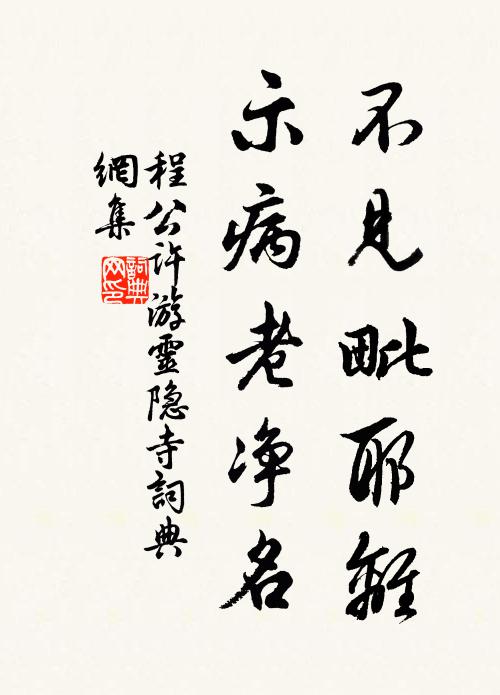 不見毗耶離
示病老净名
程公許游靈隐寺詞典
網集
詞典网印